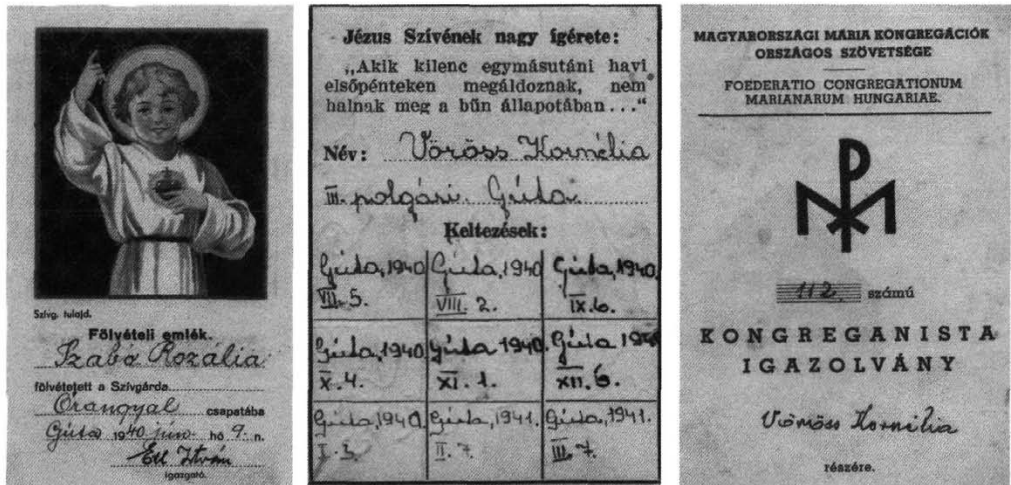 Szivg. tulajd.
Fölvételi emlék.
Szabó Rozália
fölvétetett a Szívgárda
Őrangyal csapatába
Gúta 1940 jún. hó 9. n.
István
igazgató.
Jézus Szívének nagy ígérete:
„Akik kilenc egymásutáni havi
elsőpénteken megáldoznak, nem
halnak meg a bűn állapotában..."
Név: Vöröss Kornélia
III. polgári. Gúta.
Keltezések:
Gúta, 1940 Gúta, 1940 Gúta, 1940.
VII. 5. VIII. 2. IX. 6.
Gúta, 1940 Gúta 1940. Gúta 1940
X. 4. XI. 1. XII. 6.
Gúta, 1940. Gúta, 1941. Gúta, 1941.
I. 3. II. 7. III. 7.
MAGYARORSZÁGI MÁRIA KONGREGÁCIÓK
ORSZÁGOS SZÖVETSÉGE
FOEDERATIO CONGREGATIONUM
MARIANARUM HUNGARIAE.
112. számú
KONGREGANISTA
IGAZOLVÁNY
Vöröss Kornélia
részére.